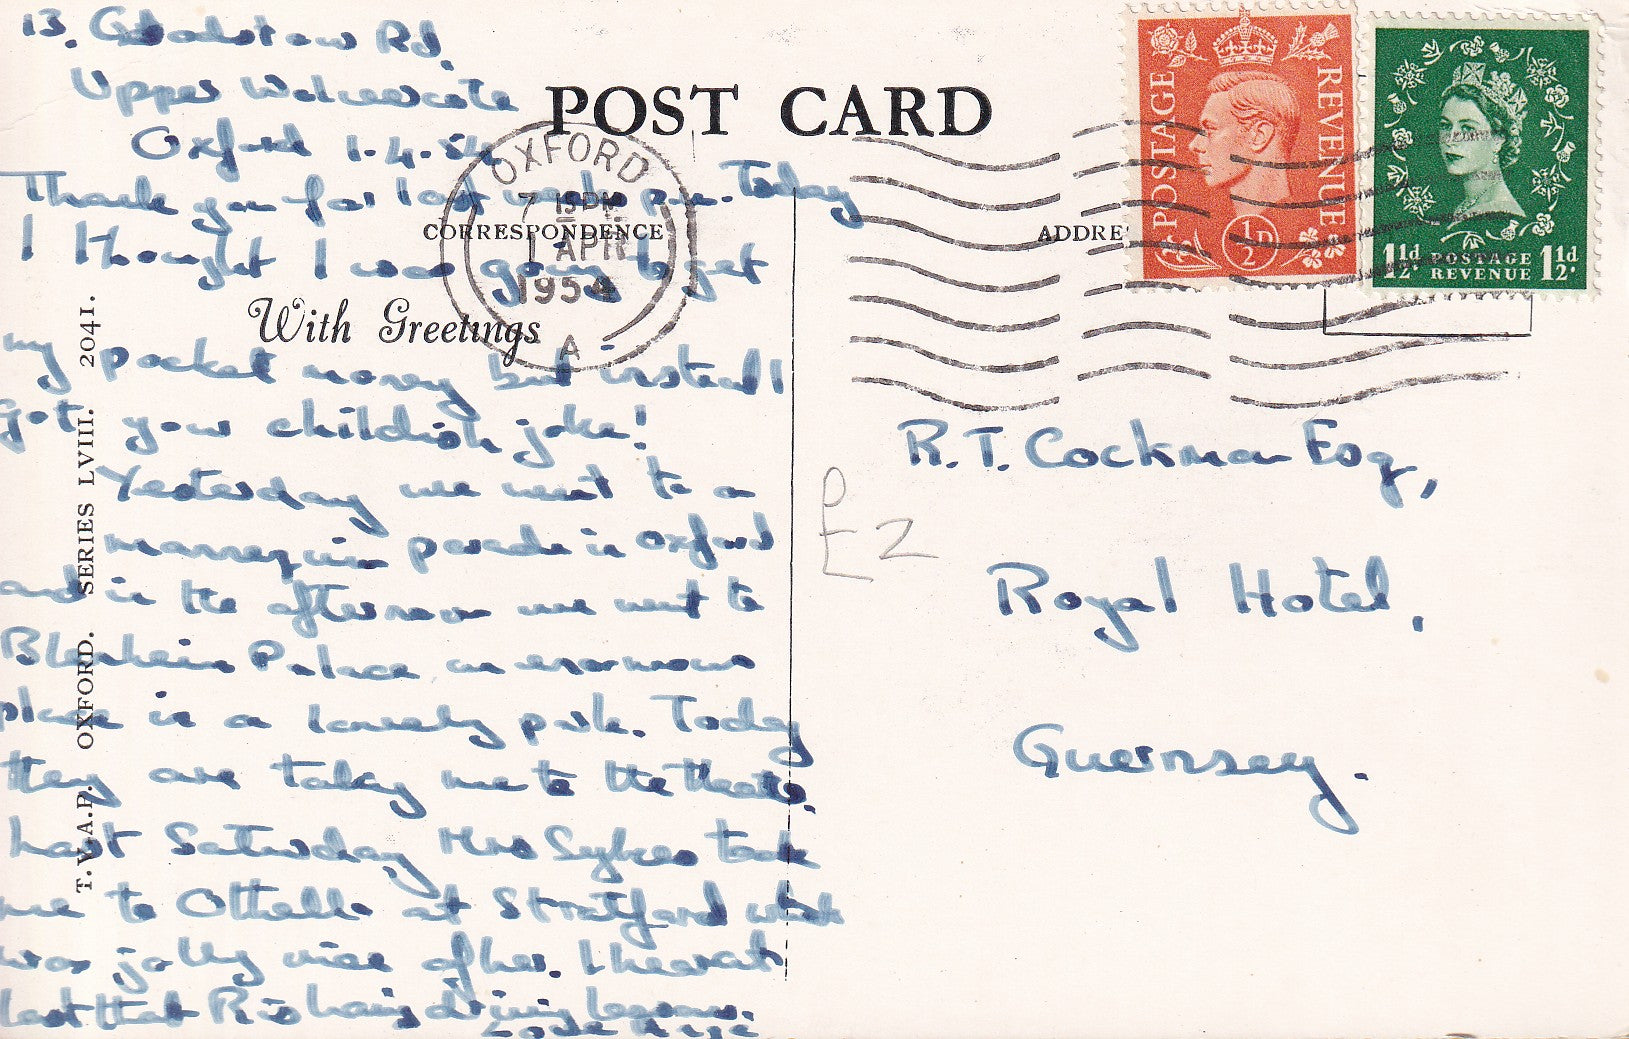 13, Godstow Rd.
Upper Wolvercote
Oxford 1.4.54
POST CARD
CORRESPONDENCE
ADDRE
With Greetings
Thank you for last week's p.c. Today
I thought I was going to get
my pocket money but instead I
got your childish joke!
Yesterday we went to a
mannequin parade in Oxford
and in the afternoon we went to
Blenheim Palace an enormous
place in a lovely park. Today
they are taking me to the theatre.
Last Saturday Mrs Sykes took
me to Othello at Stratford which
was jolly nice of her. I hear at
last that Ri is having driving lessons.
Love
T.V.A.P. OXFORD. SERIES LVIII. 2041.
OXFORD
7 15 PM
1 APR
1954
A
POSTAGE REVENUE
½D
1½d. POSTAGE REVENUE 1½d.
R.T. Cockman Esq,
Royal Hotel,
Guernsey.
£2